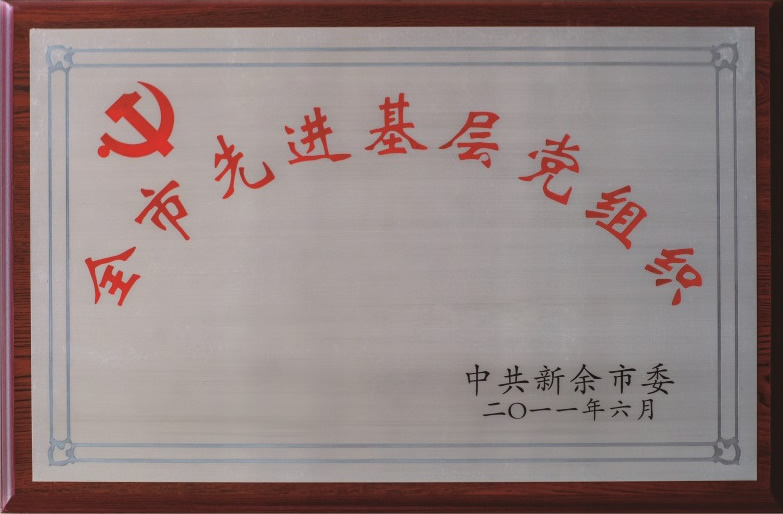 全市先进基层党组织
中共新余市委
二〇一一年六月